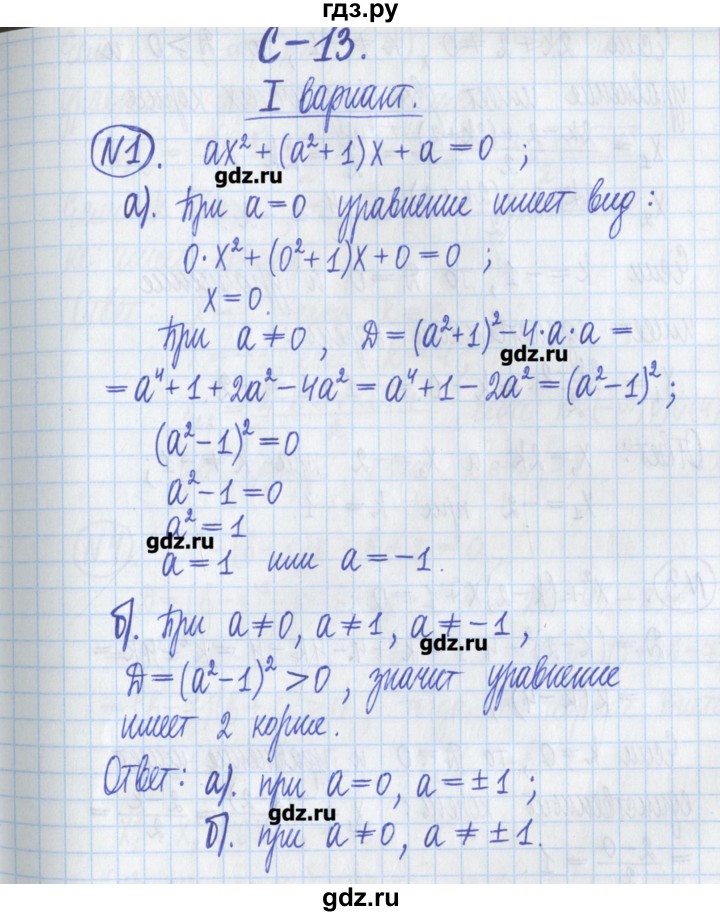 гдз.ру
С-13.
I вариант.
№1. ax² + (a² + 1)x + a = 0 ;
gdz.ru
а). При a = 0 уравнение имеет вид :
0 · x² + (0² + 1)x + 0 = 0 ;
x = 0.
При a ≠ 0 , Д = (a² + 1)² - 4 · a · a =
gdz.ru
= a⁴ + 1 + 2a² - 4a² = a⁴ + 1 - 2a² = (a² - 1)² ;
(a² - 1)² = 0
a² - 1 = 0
a² = 1
gdz.ru
a = 1 или a = -1.
б). При a ≠ 0, a ≠ 1 , a ≠ -1 ,
gdz.ru
Д = (a² - 1)² > 0 , значит уравнение
имеет 2 корня.
Ответ: а). при a = 0, a = ±1 ;
gdz.ru
б). при a ≠ 0, a ≠ ±1.
gdz.ru